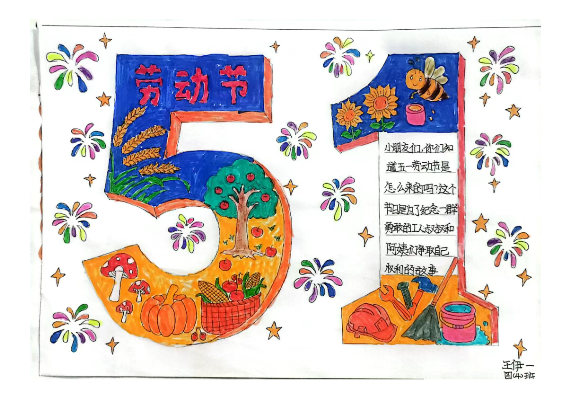 劳动节
小朋友们，你们知
道五一劳动节是
怎么来的吗？这个
节日是为了纪念一群
勇敢的工人叔叔和
阿姨们争取自己
权利的故事
王伊一
四(4)班